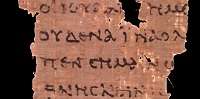 ΟΙ ΙΟΥΔΑΙ ΗΜΕ
ΟΥΔΕΝΑ ΙΝΑ Ο Λ
ΠΕΝ ϹΗΜΑΙΝΩ
ΘΝΗϹΚΕΙΝ